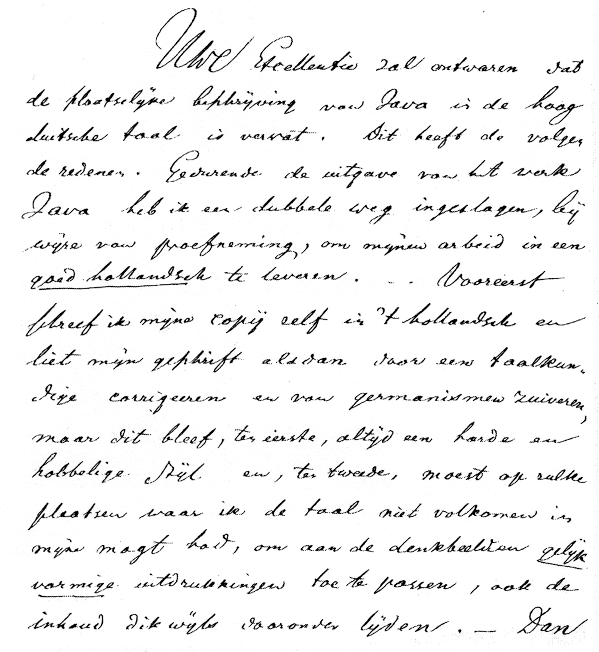 Uwe Excellentie zal ontwaren dat
de plaatselijke beschrijving van Java in de hoog
duitsche taal is vervat. Dit heeft de volgen
de redenen. Gedurende de uitgave van het werk
Java heb ik een dubbele weg ingeslagen, bij
wijze van proefneming, om mijnen arbeid in een
goed hollandsch te leveren. .. Vooreerst
schreef ik mijne copij zelf in 't hollandsch en
liet mijn geschrift alsdan door een taalkun-
dige corrigeeren en van germanismen zuiveren,
maar dit bleef, ten eerste, altijd een harde en
hobbelige stijl en, ten tweede, moest op zulke
plaatsen waar ik de taal niet volkomen in
mijne magt had, om aan de denkbeelden gelijk
vormige uitdrukkingen toe te passen, ook de
inhoud dikwijls daaronder lijden. — Dan